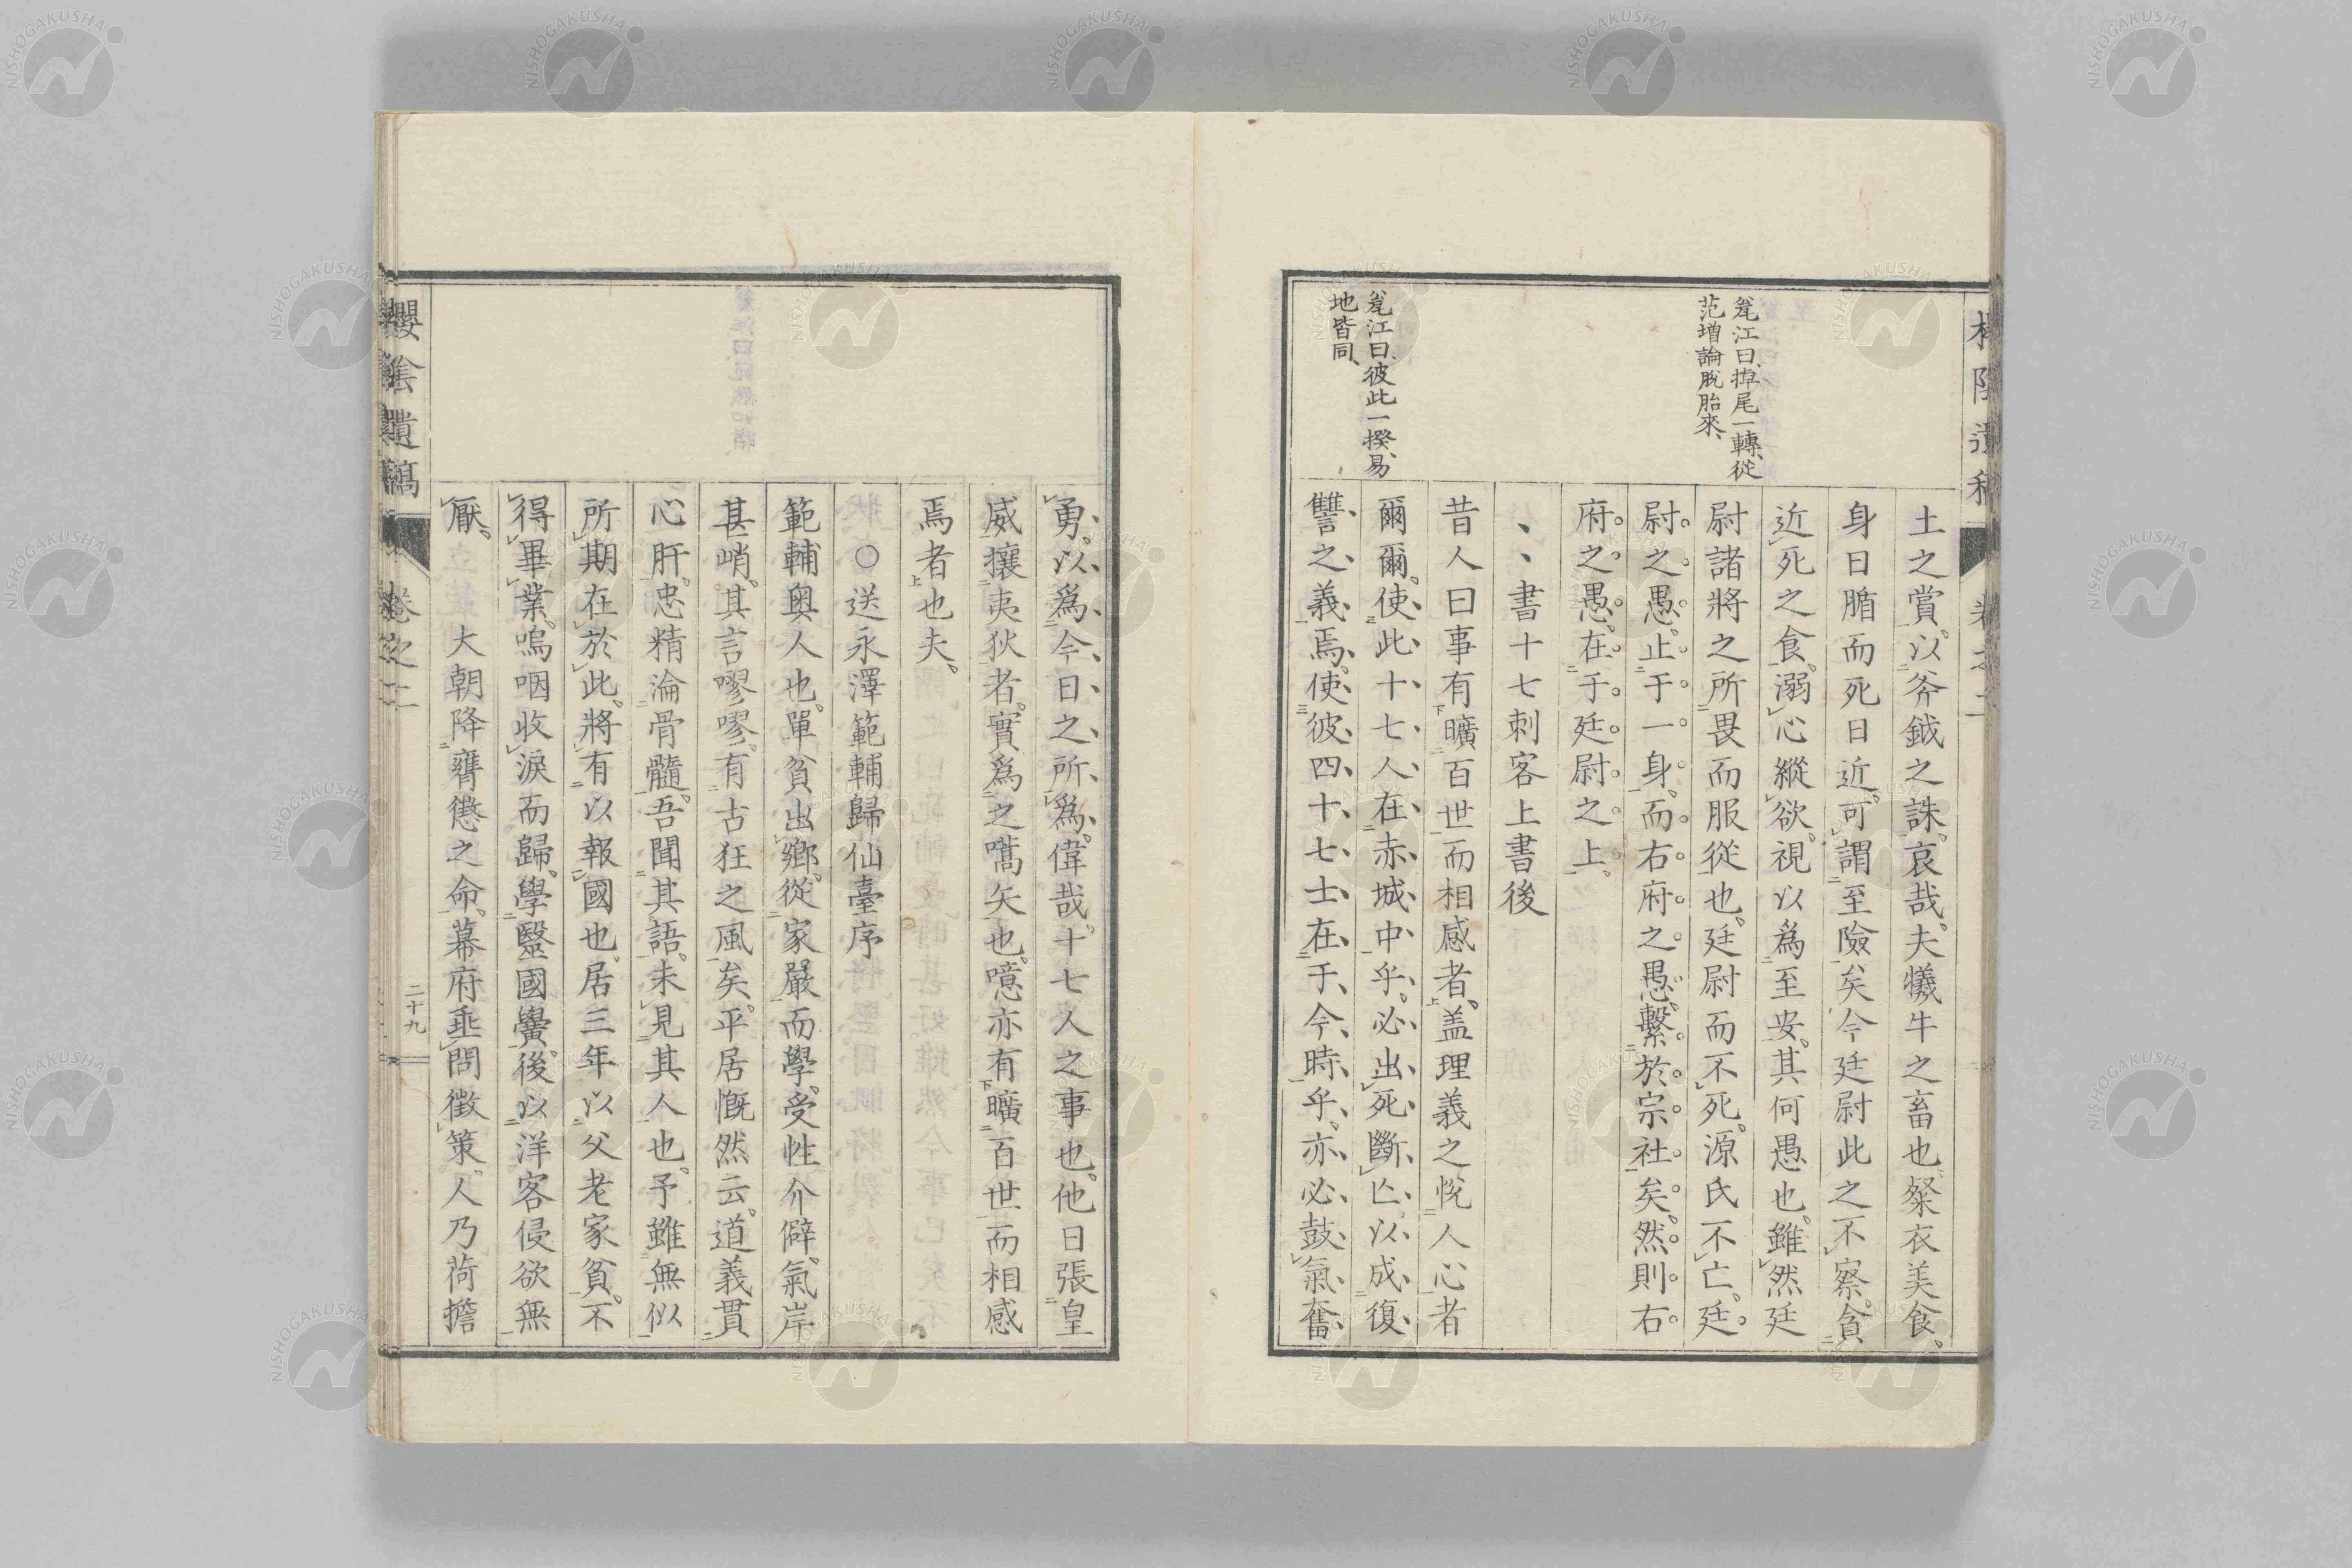 土之賞。以斧鉞之誅。哀哉。夫犧牛之畜也。粲衣美食。
身日腯而死日近。可謂至險矣。今廷尉此之不察。貪
近死之食。溺心縱欲。視以爲至安。其何愚也。雖然廷
尉諸將之所畏而服從也。廷尉而不死。源氏不亡。廷
尉之愚。止于一身。而右府之愚。繫於宗社矣。然則右
府之愚。在于廷尉之上。
、、書十七刺客上書後
昔人曰事有曠百世而相感者。盖理義之悅人心者
爾爾。使此十七人在赤城中乎。必出死斷亾以成復
讐之義焉。使彼四十七士在于今時乎。亦必鼓氣奮
江曰、掉尾一轉、從
范增論脫胎來、
江曰、彼此一揆、易
地皆同、
勇。以爲今日之所爲。偉哉。十七人之事也。他日張皇
威攘夷狄者。實爲之嚆矢也。噫亦有曠百世而相感
焉者也夫。
○送永澤範輔歸仙臺序
範輔奧人也。單貧出鄉。從家嚴而學。受性介僻。氣岸
甚峭。其言嘐嘐。有古狂之風矣。平居慨然云。道義貫
心肝。忠精淪骨髓。吾聞其語。未見其人也。予雖無似
所期在於此。將有以報國也。居三年以父老家貧。不
得畢業。嗚咽收淚而歸。學毉國黌。後以洋客侵欲無
厭。大朝降膺懲之命。幕府垂問徵策。人乃荷擔
櫻陰遺稿
卷之二
二十九